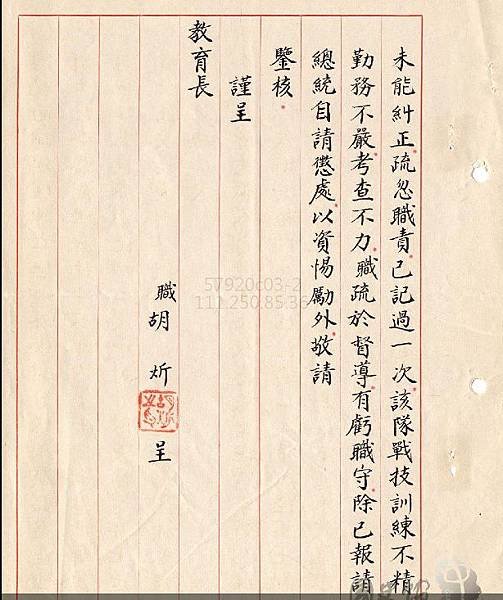 未能糾正疏忽職責已記過一次該隊戰技訓練不精
勤務不嚴考查不力職疏於督導有虧職守除已報請
總統自請懲處以資惕勵外敬請
鑒核
謹呈
教育長
職胡炘呈
57920c03-2
111.250.85.36